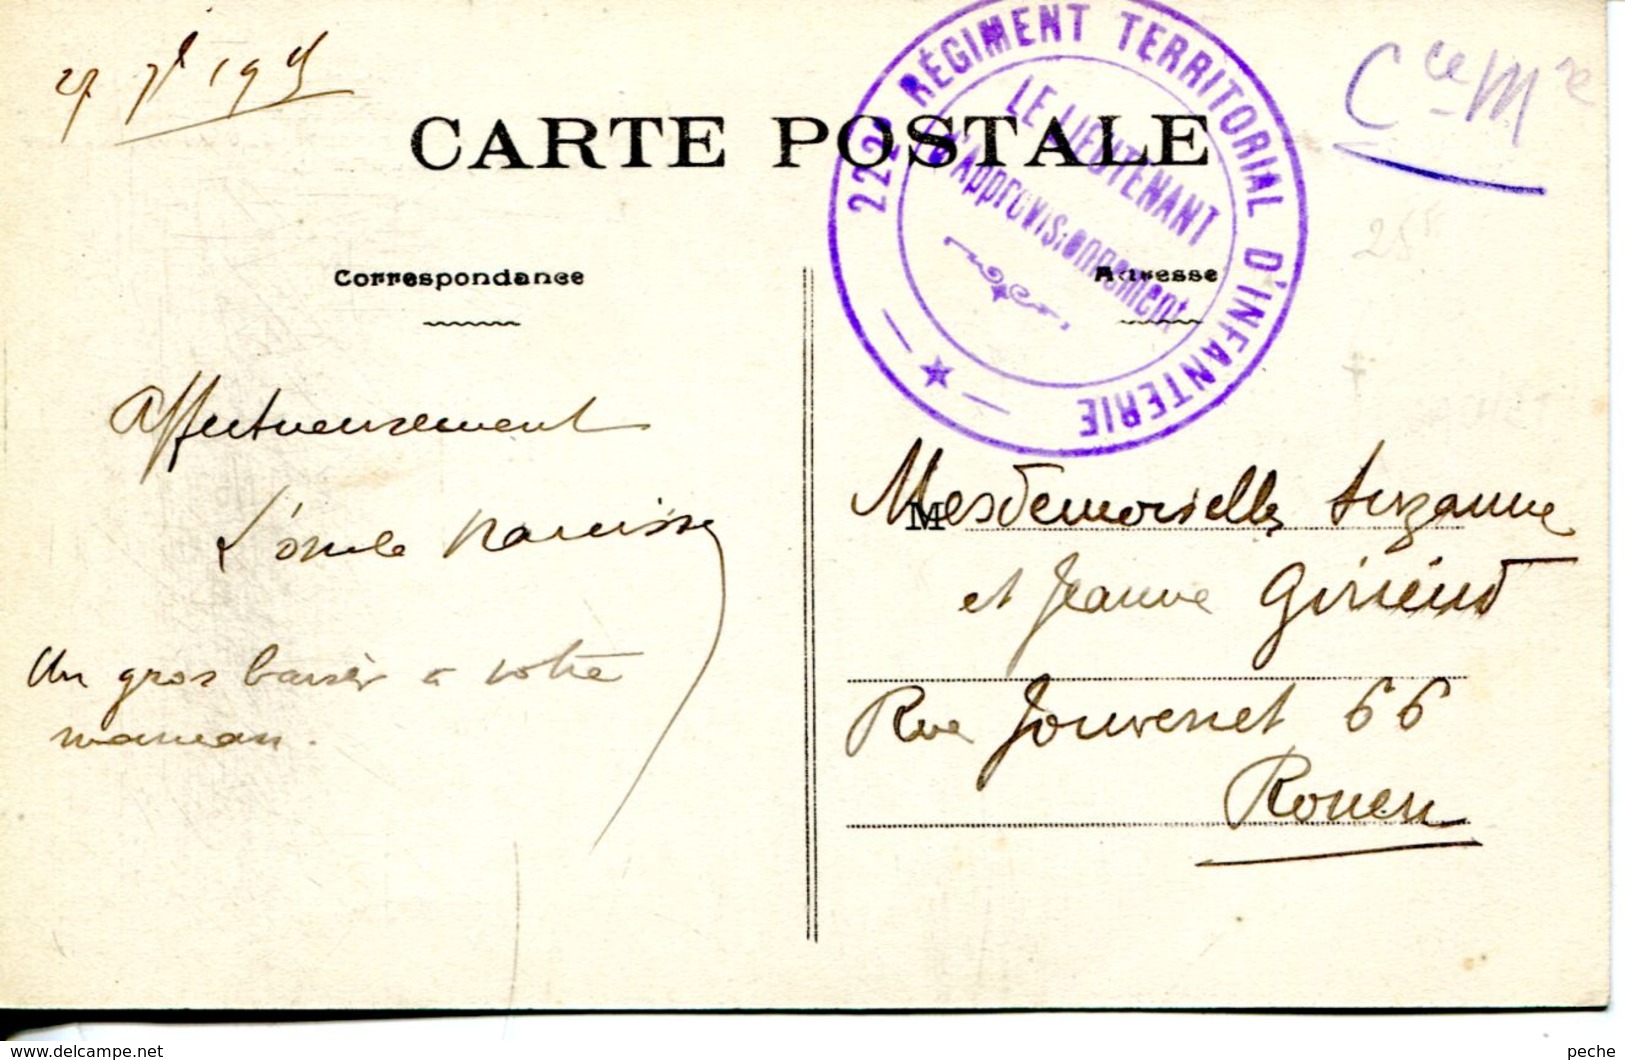 27 7bre 1915
Cce Mre
CARTE POSTALE
222e RÉGIMENT TERRITORIAL D'INFANTERIE
LE LIEUTENANT
d'Approvisionnement
Correspondance
Adresse
25F
Affectueusement
L'oncle Narcisse
Un gros baiser à votre
maman.
Mesdemoiselles Suzanne
et Jeanne
Rue Jouvenet 66
Rouen
www.delcampe.net
peche